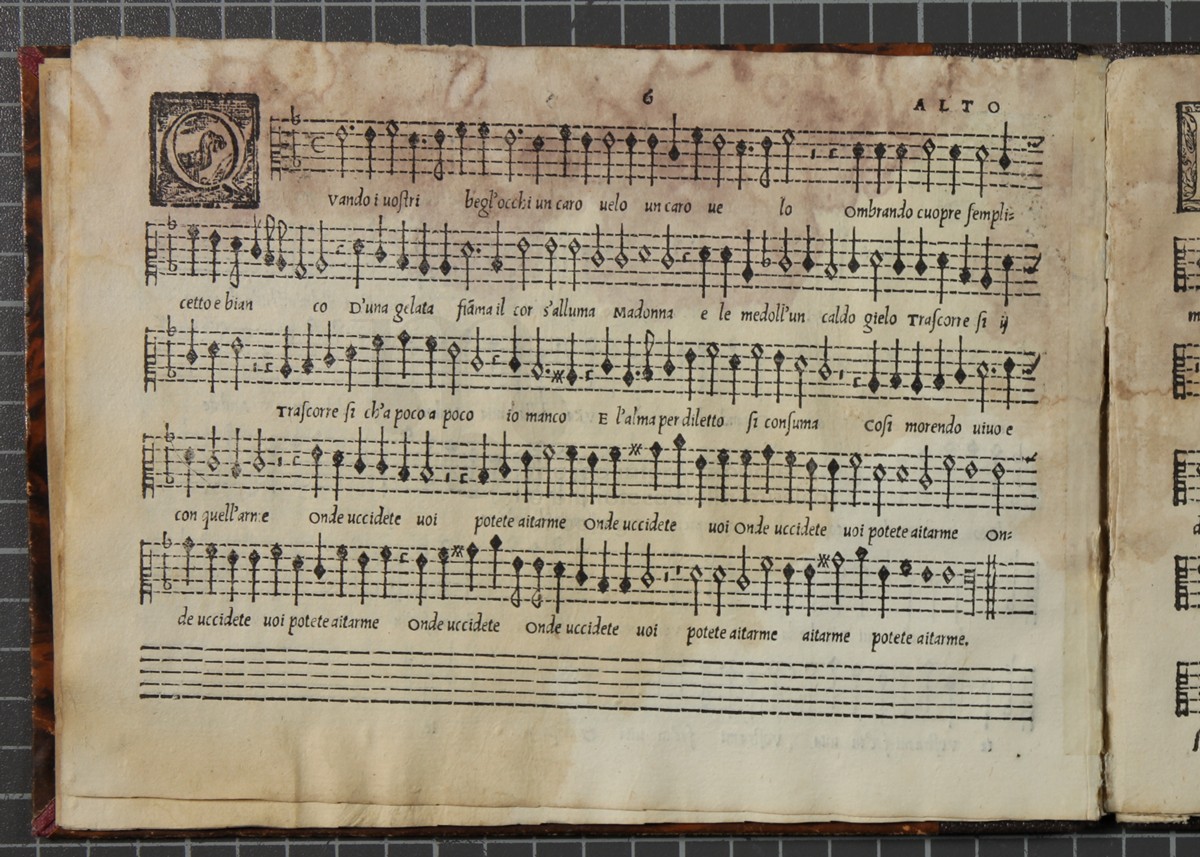 6
ALTO
Q vando i uostri begl'occhi un caro uelo un caro ue lo Ombrando cuopre sempli=
cetto e bian co D'una gelata fiāma il cor s'alluma Madonna e le medoll'un caldo gielo Trascorre si ij
Trascorre si ch'a poco a poco io manco E l'alma per diletto si consuma Cosi morendo uiuo e
con quell'arme Onde uccidete uoi potete aitarme Onde uccidete uoi Onde uccidete uoi potete aitarme On=
de uccidete uoi potete aitarme Onde uccidete Onde uccidete uoi potete aitarme aitarme potete aitarme.